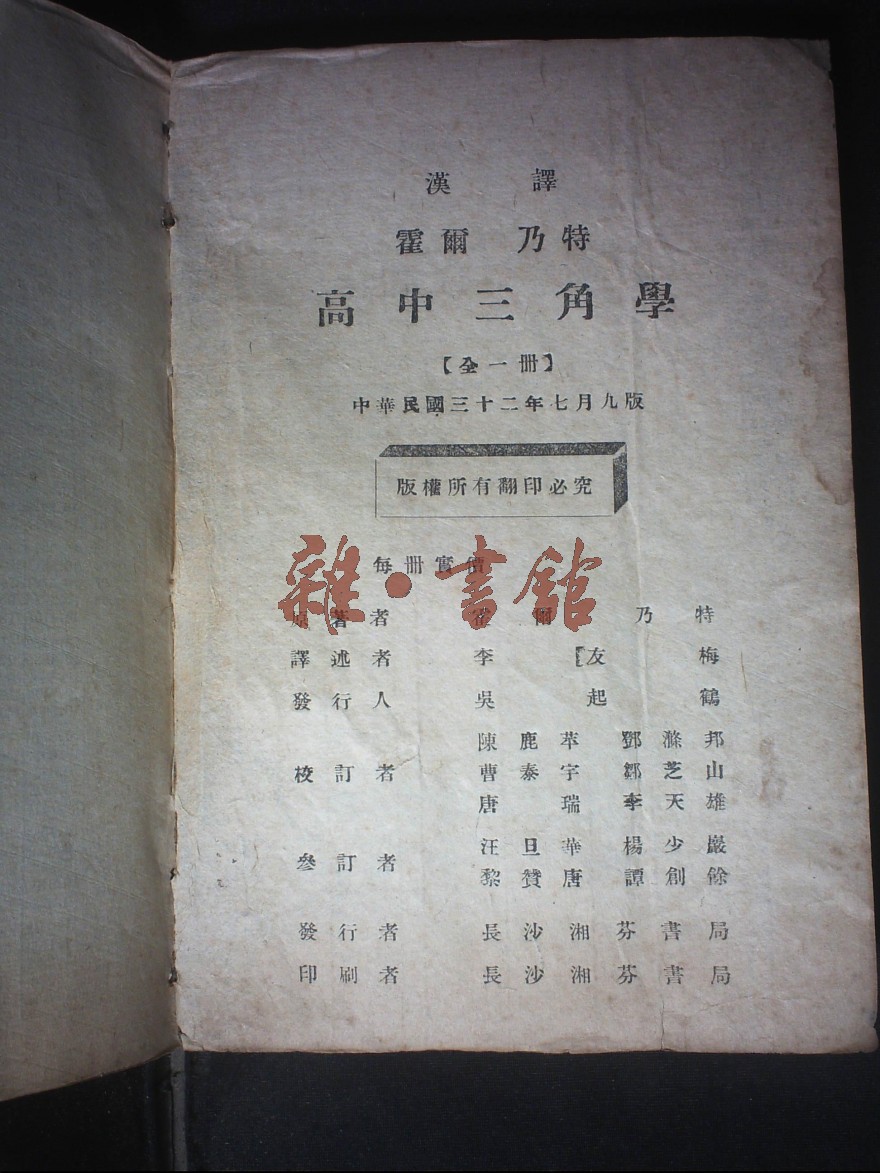 漢譯
霍爾 乃特
高中三角學
【全一册】
中華民國三十二年七月九版
版權所有翻印必究
每册實價
雜·書館
原著者 霍爾 乃特
譯述者 李【友梅
發行人 吳起鶴
陳鹿苹 鄧滌邦
校訂者 曹泰宇 鄒芝山
唐瑞 李天雄
汪旦華 楊少巖
參訂者
黎贊唐 譚創餘
發行者 長沙湘芬書局
印刷者 長沙湘芬書局